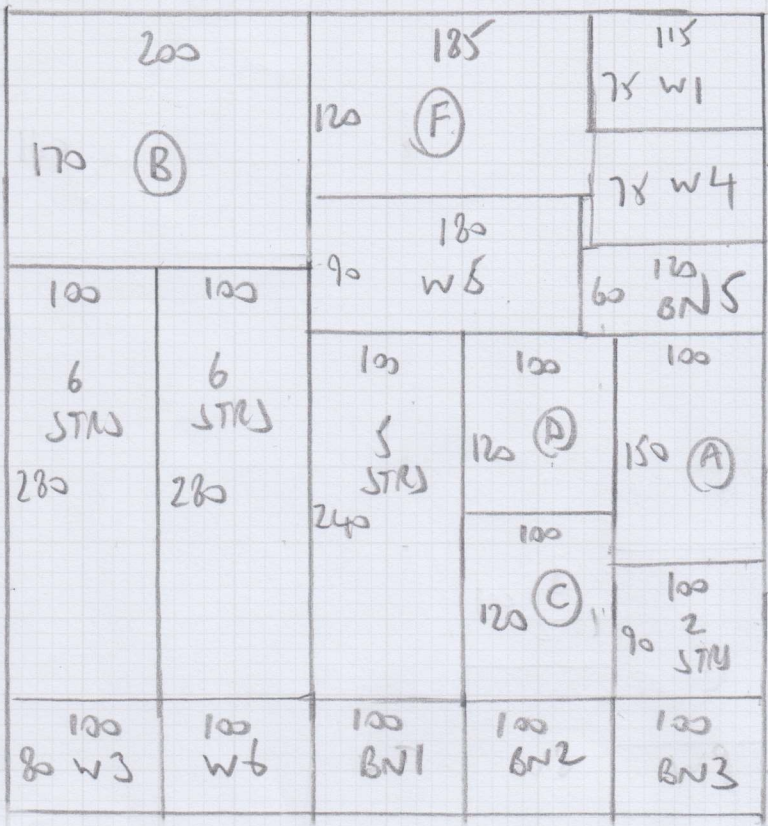 200
170 B
185
120 F
115
75 W1
75 W4
180
90 W5
120
60 BN5
100
6
STRS
280
100
6
STRS
280
100
5
STRS
240
100
120 D
100
150 A
100
120 C
100
2
90 STRS
100
80 W3
100
W6
100
BN1
100
BN2
100
BN3